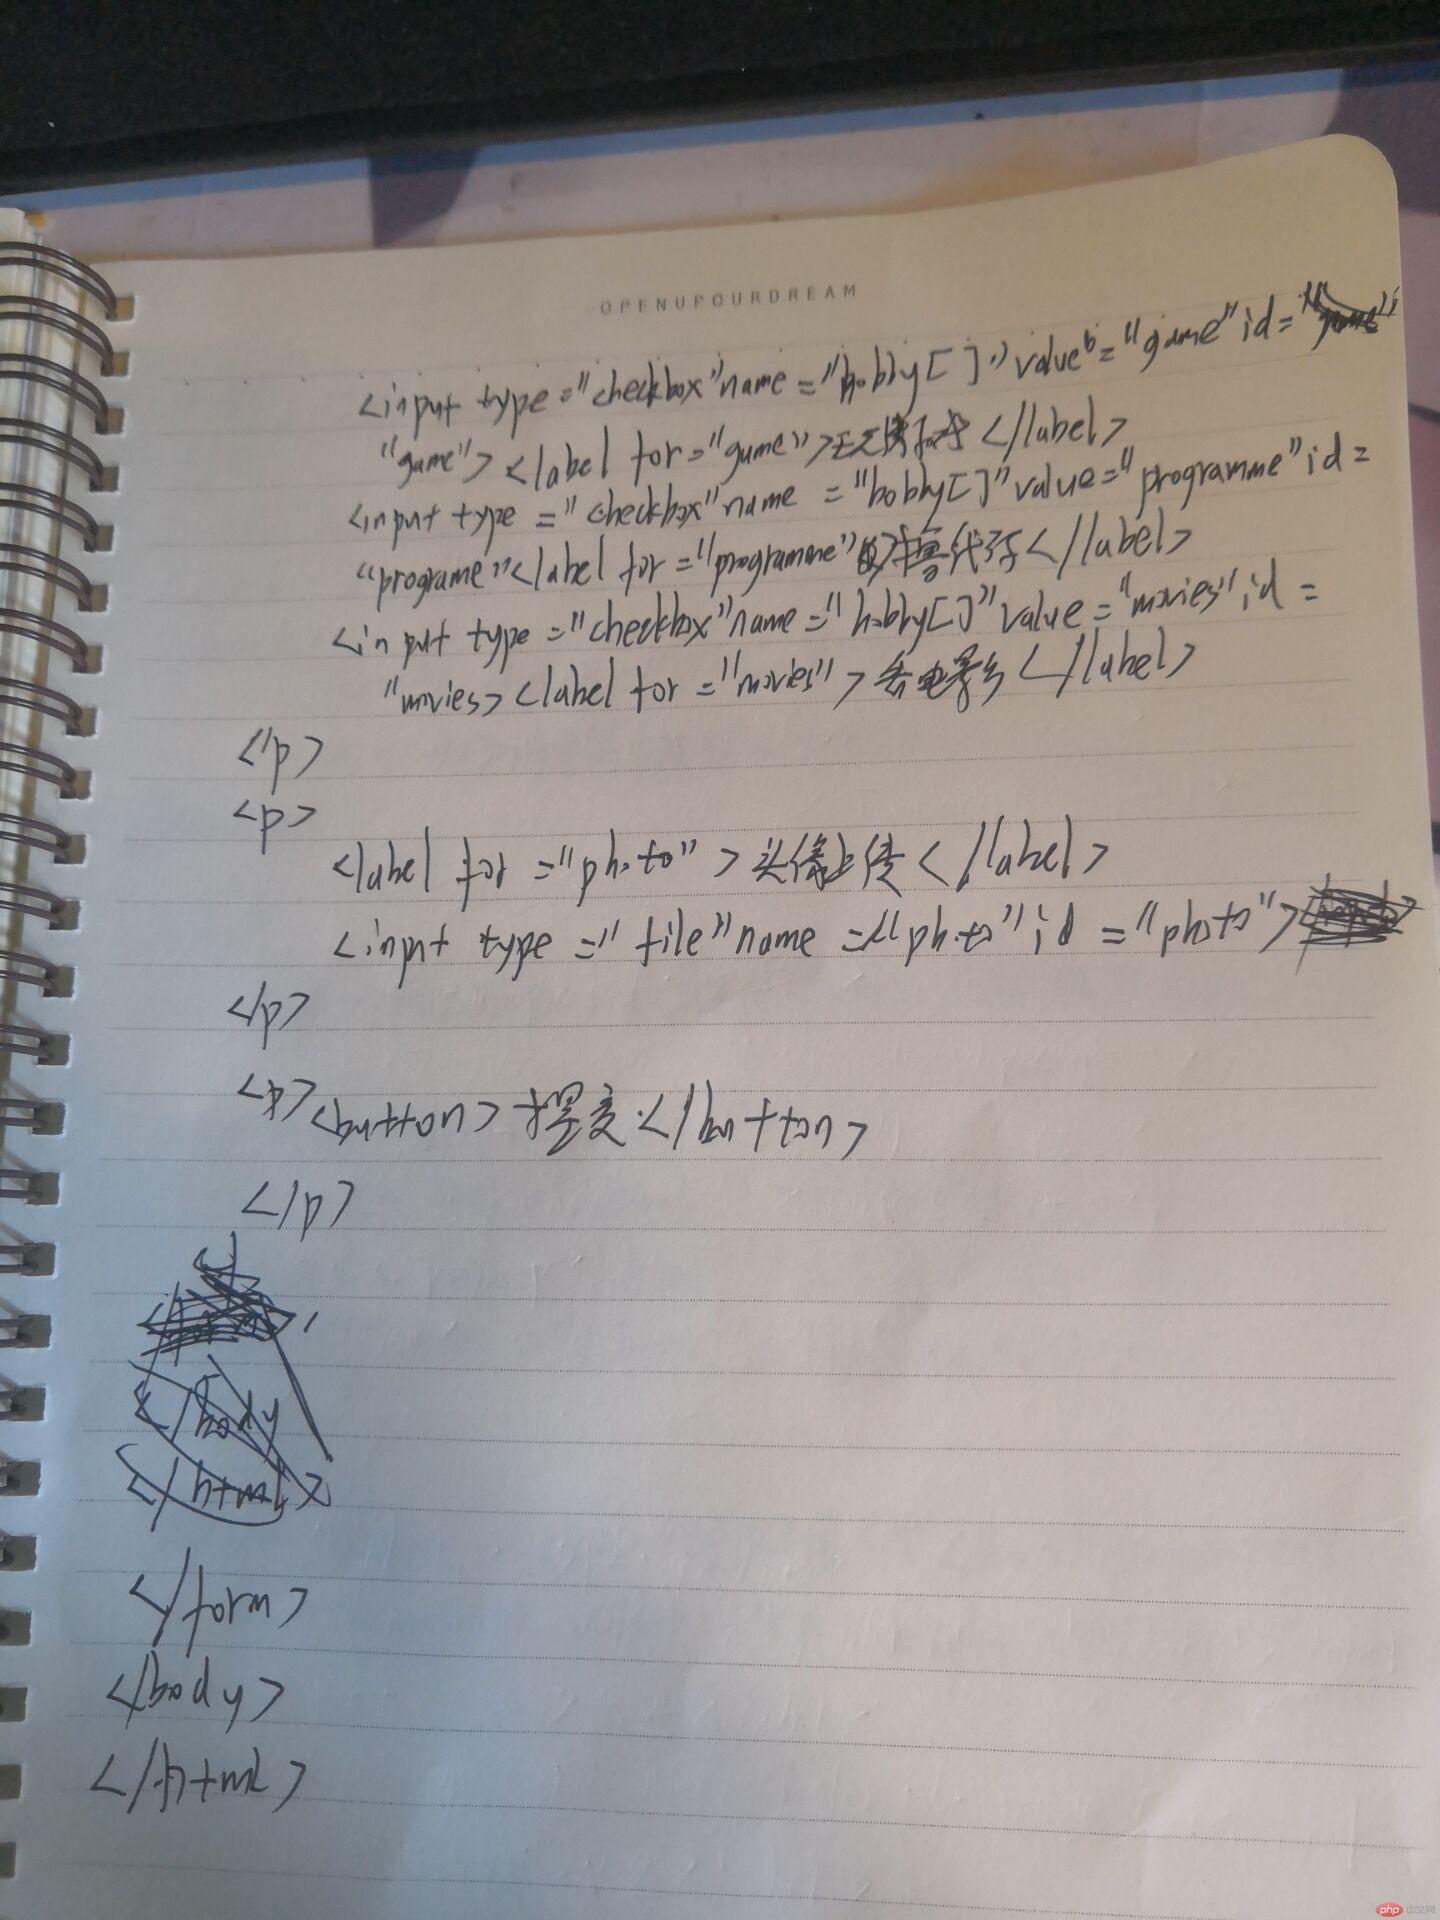 OPENUPOURDREAM
<input type="checkbox"name="hobby[]"value="game"id="
"game"><label for="game">玩游戏</label>
<input type="checkbox"name="hobby[]"value="programme"id=
"programe"<label for="programme"代码</label>
<input type="checkbox"name="hobby[]"value="movies"id=
"movies><label for="movies">看电影</label>
</p>
<p>
<label for="photo">头像上传</label>
<input type="file"name="photo"id="photo">
</p>
<p><button>提交</button>
</p>
</body
</html>
</form>
</body>
</html>
php 中文网